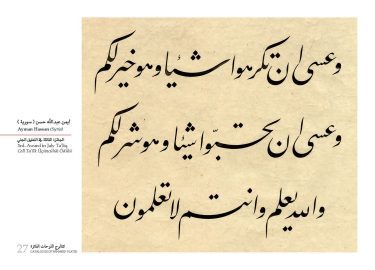 وعسى ان تكرهوا شيئا وهو خير لكم
وعسى ان تحبّوا شيئا وهو شر لكم
والله يعلم وانتم لا تعلمون
أيمن عبدالله حسن ( سورية )
Ayman Hassan (Syria)
الجائزة الثالثة في التعليق الجلي
3rd. Award in Jaly Ta'liq
Celî Ta'lik Üçüncülük Ödülü
27
كتالوج اللوحات الفائزة
CATALOGUE OF WINNING PLATES